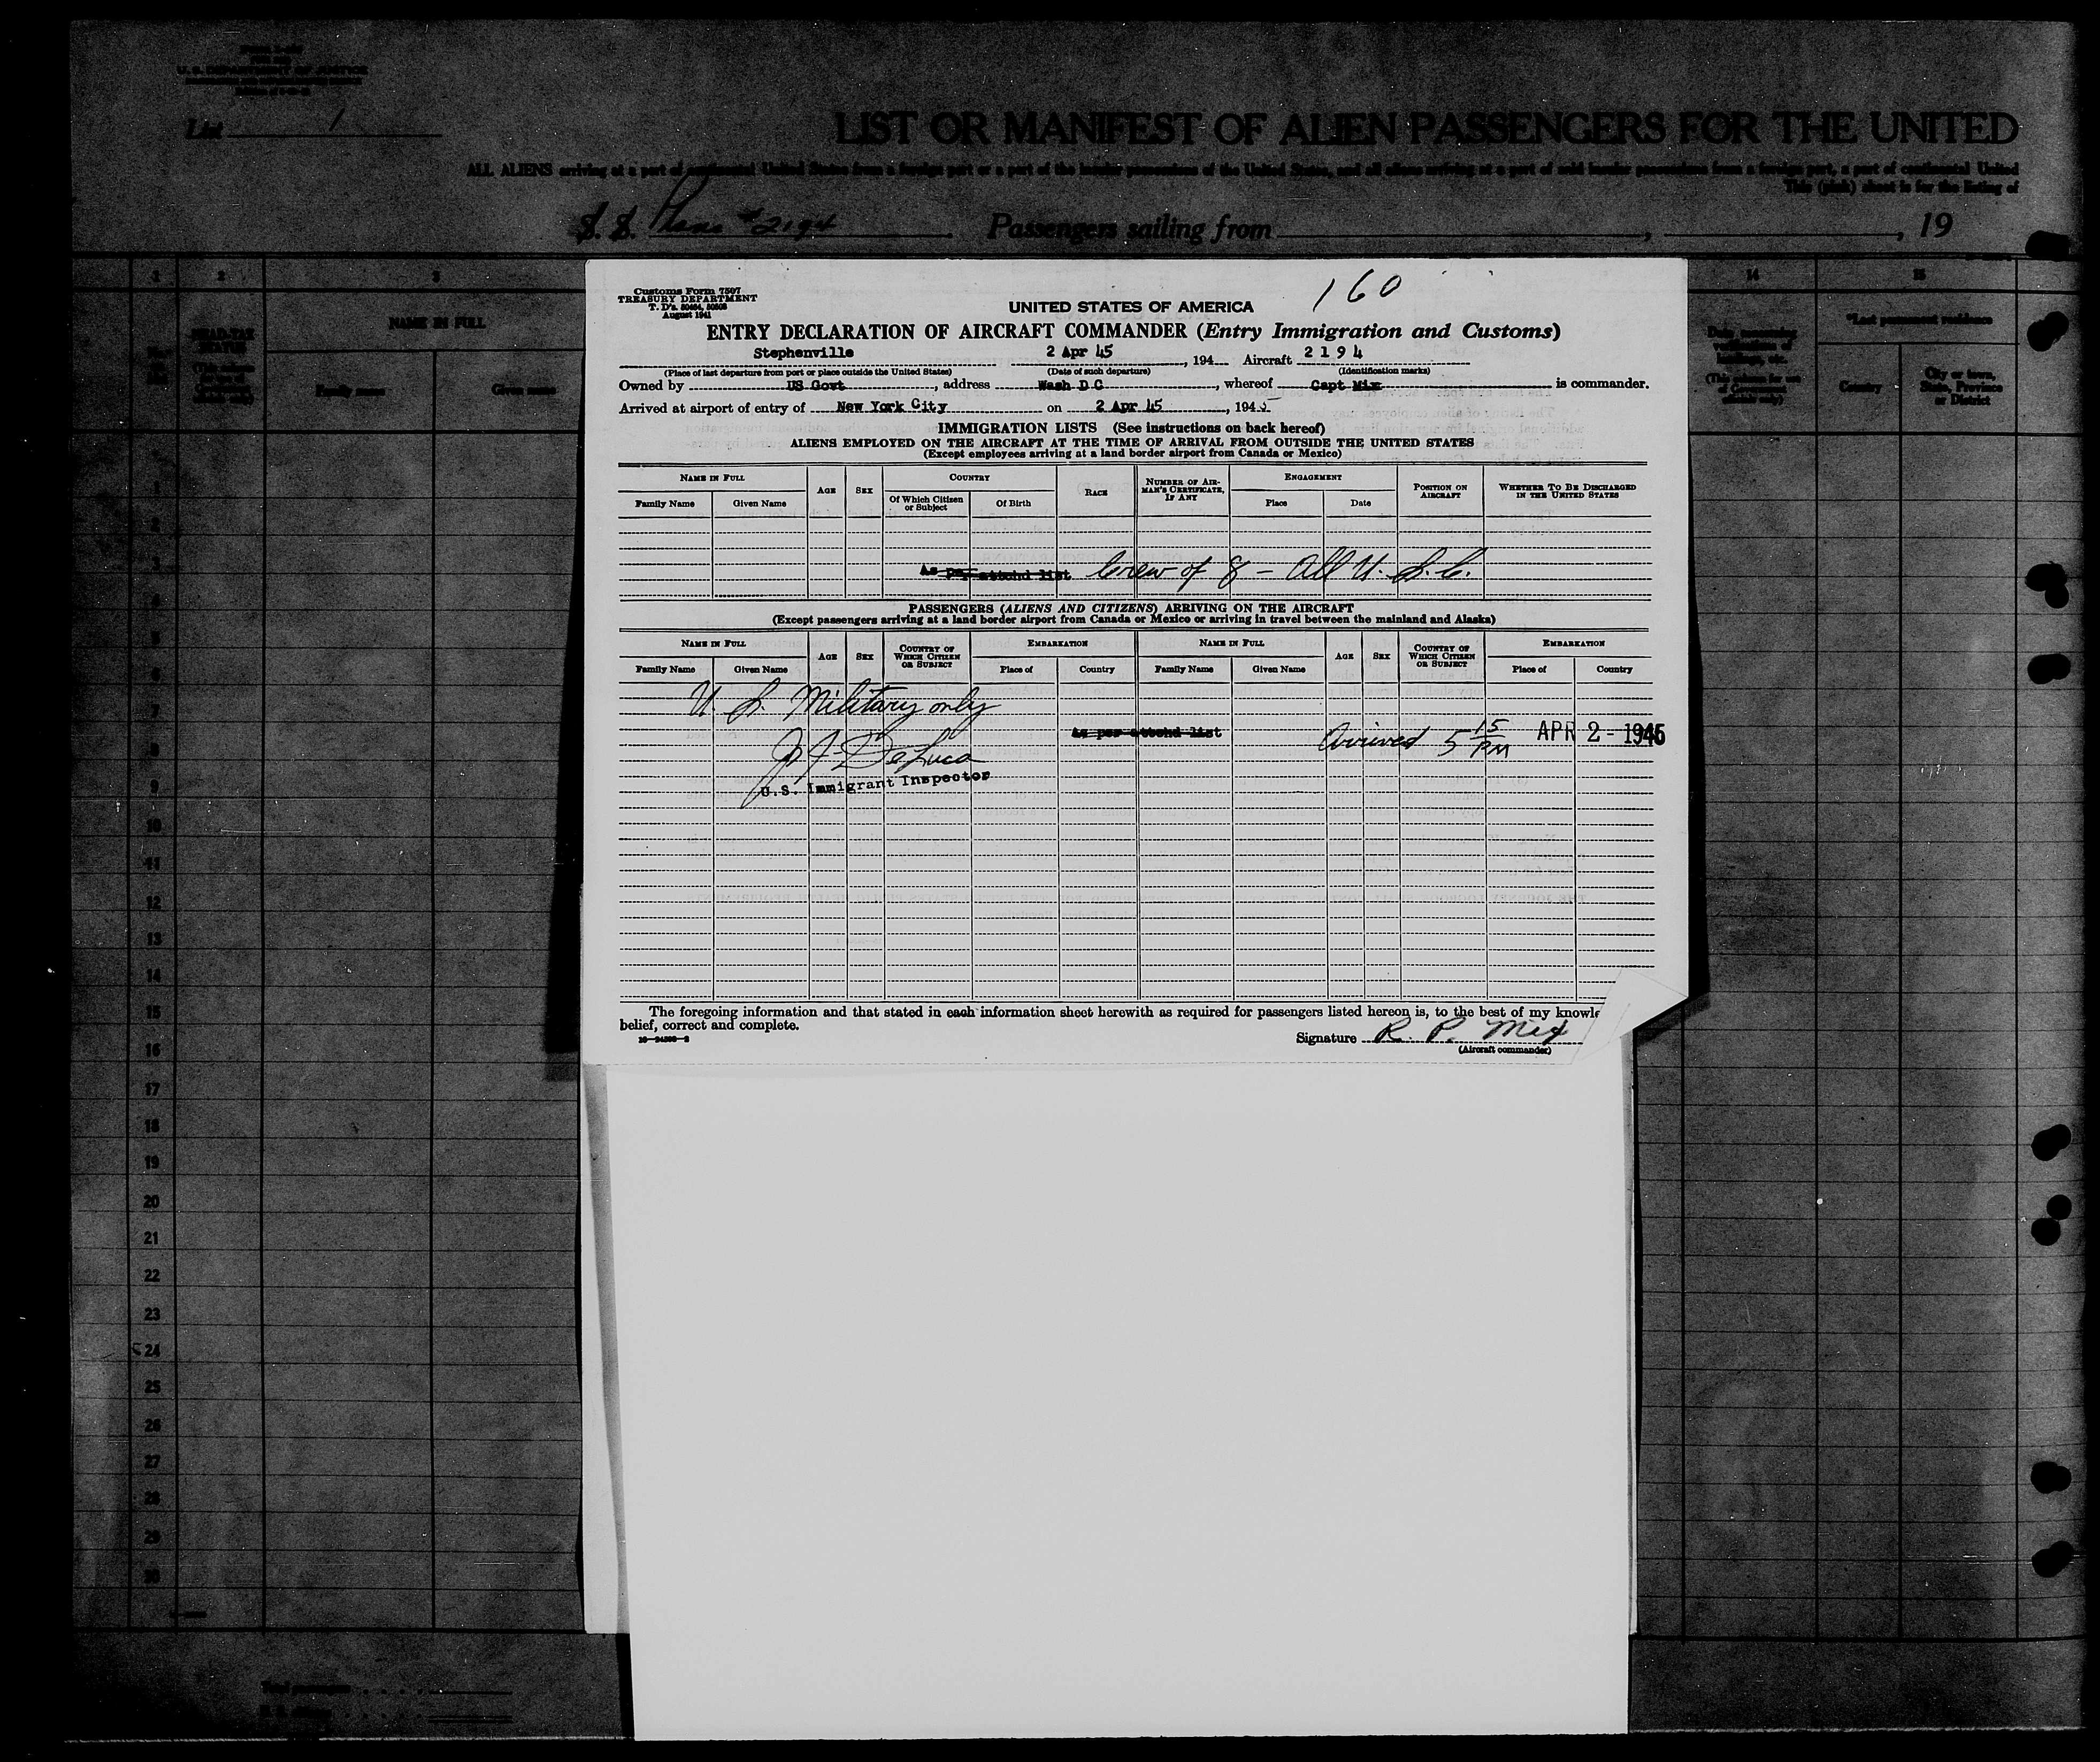 U. S. DEPARTMENT OF JUSTICE
List 1
LIST OR MANIFEST OF ALIEN PASSENGERS FOR THE UNITED
ALL ALIENS arriving at a port of continental United States from a foreign port or a port of the insular possessions of the United States, and all aliens arriving at a port of said insular possessions from a foreign port, a port of continental United
This (pink) sheet is for the listing of
S. S. Plane #2194 Passengers sailing from , , 19
1 2 3 14 15
HEAD-TAX STATUS
NAME IN FULL
Family name Given name
*Last permanent residence
Country City or town, State, Province or District
Customs Form 7507
TREASURY DEPARTMENT
T. D's. 50464, 50603
August 1941
160
UNITED STATES OF AMERICA
ENTRY DECLARATION OF AIRCRAFT COMMANDER (Entry Immigration and Customs)
Stephenville 2 Apr 45, 194 Aircraft 2 1 9 4
(Place of last departure from port or place outside the United States) (Date of such departure) (Identification marks)
Owned by US Govt, address Wash D C, whereof Capt Mix is commander.
Arrived at airport of entry of New York City on 2 Apr 45, 1945
IMMIGRATION LISTS (See instructions on back hereof)
ALIENS EMPLOYED ON THE AIRCRAFT AT THE TIME OF ARRIVAL FROM OUTSIDE THE UNITED STATES
(Except employees arriving at a land border airport from Canada or Mexico)
NAME IN FULL AGE SEX COUNTRY RACE NUMBER OF AIRMAN'S CERTIFICATE, IF ANY ENGAGEMENT POSITION ON AIRCRAFT WHETHER TO BE DISCHARGED IN THE UNITED STATES
Family Name Given Name Of Which Citizen or Subject Of Birth Place Date
As per attchd list Crew of 8 - All U. S. C.
PASSENGERS (ALIENS AND CITIZENS) ARRIVING ON THE AIRCRAFT
(Except passengers arriving at a land border airport from Canada or Mexico or arriving in travel between the mainland and Alaska)
NAME IN FULL AGE SEX COUNTRY OF WHICH CITIZEN OR SUBJECT EMBARKATION NAME IN FULL AGE SEX COUNTRY OF WHICH CITIZEN OR SUBJECT EMBARKATION
Family Name Given Name Place of Country Family Name Given Name Place of Country
U. S. Military only
As per attchd list Arrived 5 15 PM APR 2 - 1945
J J DeLuca
U.S. Immigrant Inspector
The foregoing information and that stated in each information sheet herewith as required for passengers listed hereon is, to the best of my knowle
belief, correct and complete.
Signature R. P. Mix
(Aircraft commander)
1
2
3
4
5
6
7
8
9
10
11
12
13
14
15
16
17
18
19
20
21
22
23
24
25
26
27
28
29
30
Total passengers